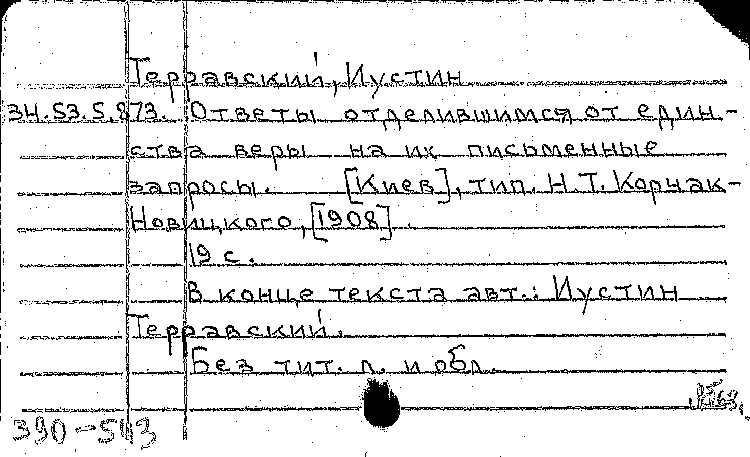 Терравский, Иустин
34.53.5.873. Ответы отделившимся от един-
ства веры на их письменные
запросы. [Киев], тип. Н.Т. Корчак-
Новицкого, [1908].
19 с.
В конце текста авт.: Иустин
Терравский.
Без тит. л. и обл.
390-543